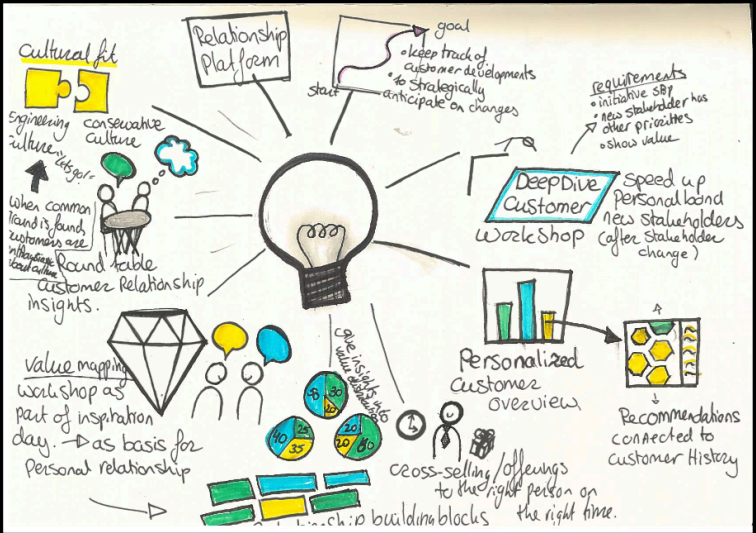 Cultural fit
Engineering
Culture
conservative
culture
"Let's go!"
when common
ground is found,
customers are
about culture
Round table
Customer Relationship
insights.
Relationship
Platform
start
goal
• keep track of
customer developments
• to strategically
anticipate on changes
requirements
• initiative SBP
• new stakeholder has
other priorities
• show value
DeepDive
Customer
workshop
Speed up
Personal bond
new stakeholders
(after stakeholder
change)
Personalized
Customer
overview
Recommendations
connected to
Customer History
value mapping
workshop as
part of inspiration
day. → as basis for
Personal relationship
give insights into
value distribution
30
20
40
25
35
20
20
60
cross-selling/offerings
to the right person on
the right time.
Relationship buildingblocks